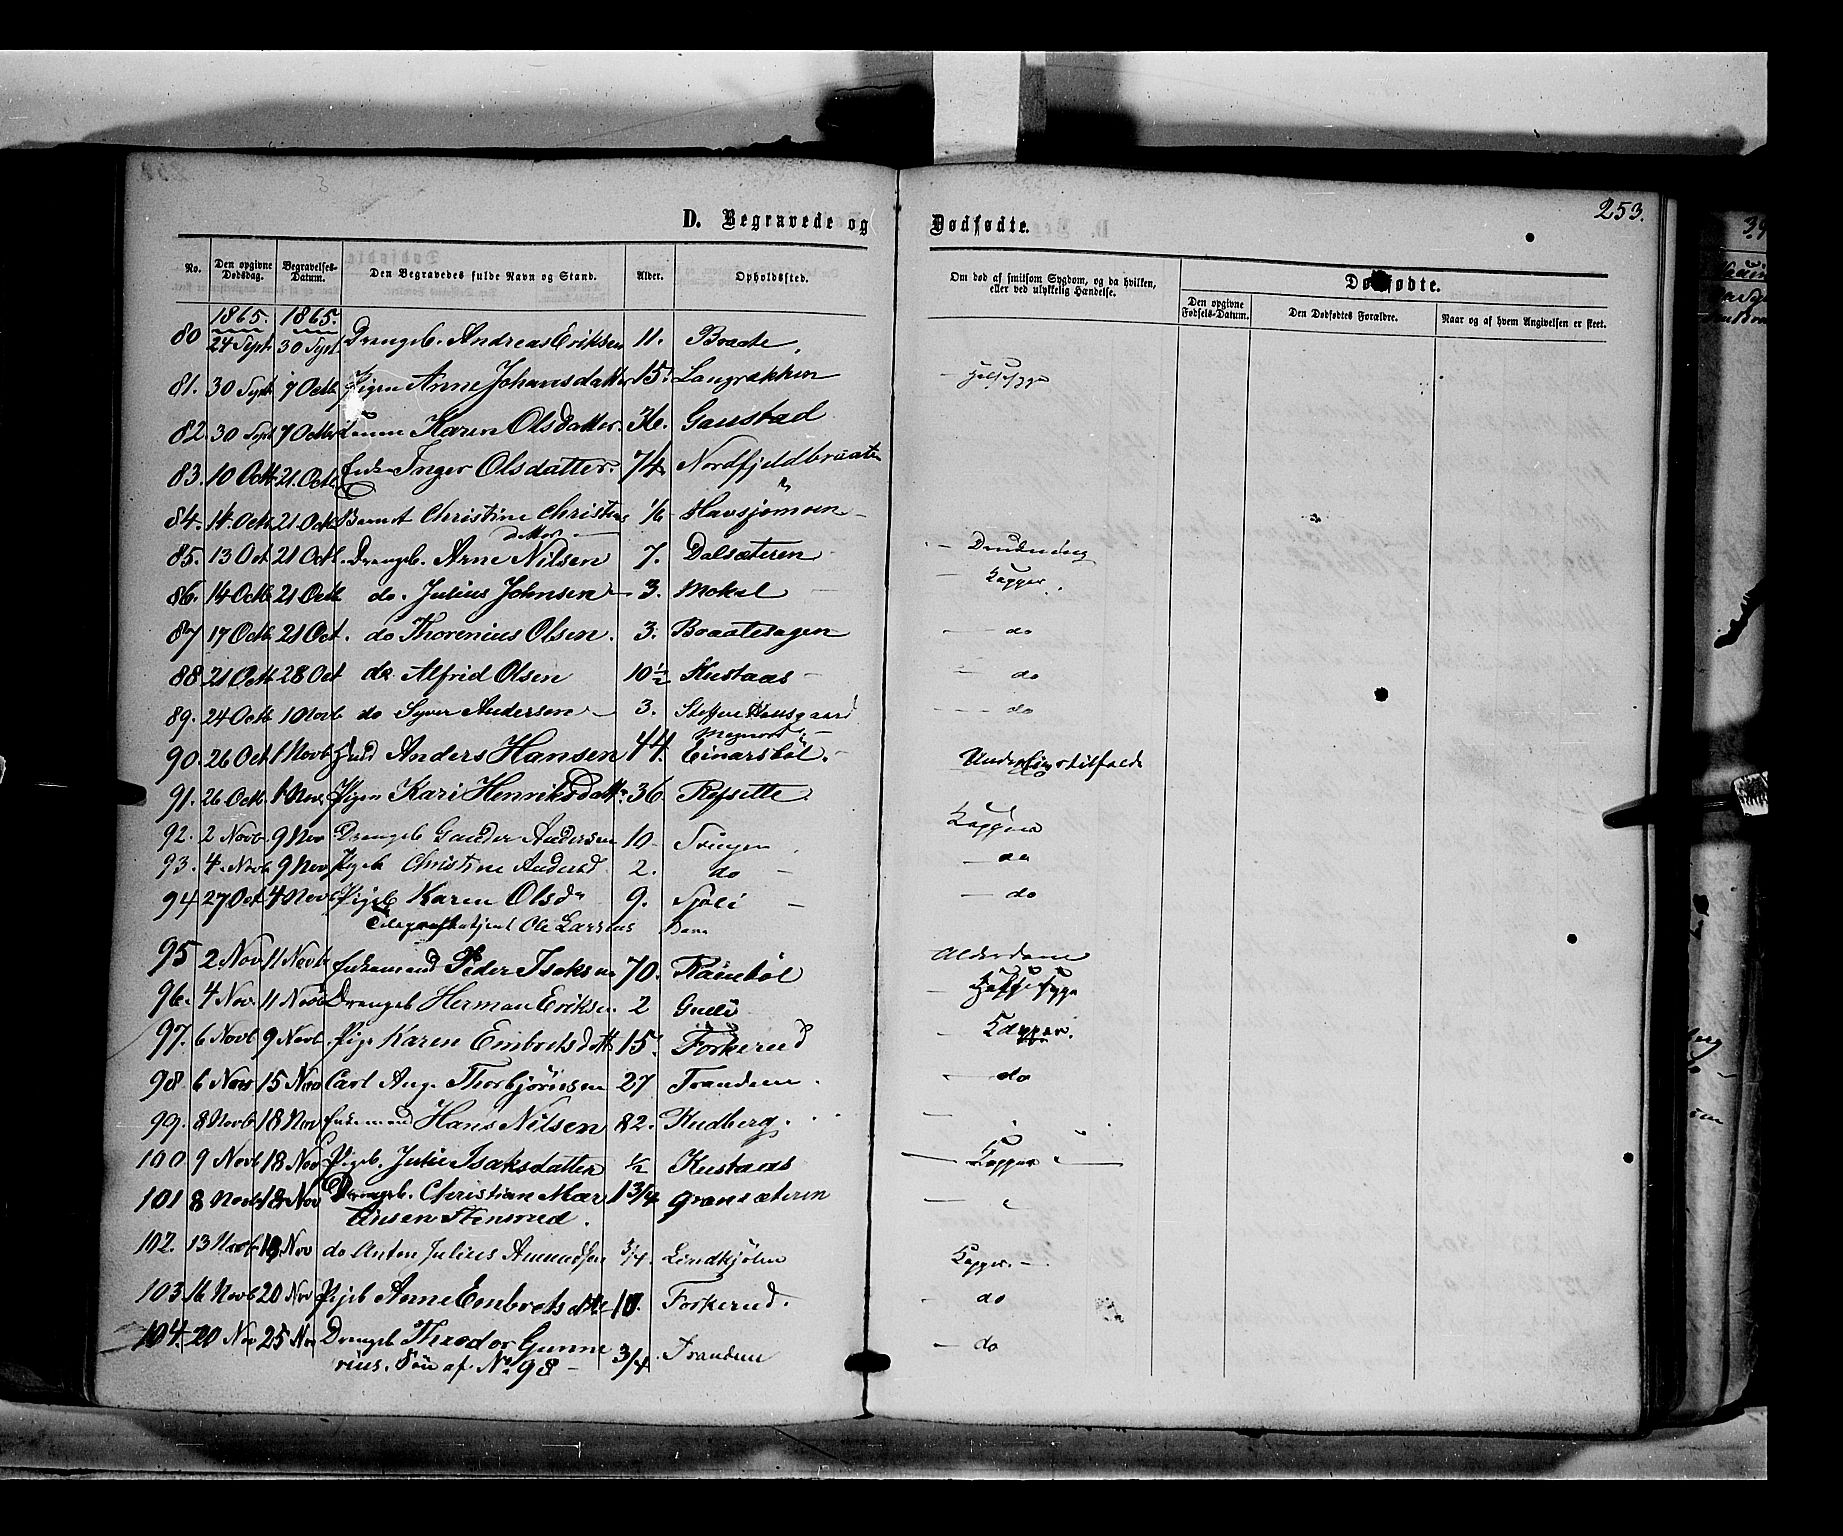 253.
D. Begravede og Dødfødte.
No. Den opgivne Dødsdag. Begravelses-Datum. Den Begravedes fulde Navn og Stand. Alder. Opholdssted. Om død af smitsom Sygdom, og da hvilken, eller ved ulykkelig Hændelse. Dødfødte.
Den opgivne Fødsels-Datum. Den Dødfødtes Forældre. Naar og af hvem Angivelsen er skeet.
1865. 1865.
80 24 Sept. 30 Sept. Drengeb. Andreas Eriksen 11. Braate
81. 30 Sept 7 Octb Pigen Anne Johansdatter 15. Langrækken
82. 30 Sept 7 Octbr Karen Olsdatter. 36. Gaustad
83. 10 Octb 21. Octb Enke Inger Olsdatter. 74. Nordfjeldbraaten
84. 14. Octb 21 Octb Barnet Christine Christens 1/6 Havsjømoen
datter
85. 13 Oct 21 Octb. Drengeb. Arne Nilsen 7. Dalsæteren
86. 14 Octb 21 Octb do. Julius Johnsen 3. Mokal — Kopper.
87 17 Octb 21 Oct. do Thorenius Olsen. 3. Braatehagen — do
88 21 Octb 28 Oct do Alfrid Olsen 10 1/2 Kustaas — do
89. 24 Octb 1 Novb do Syver Andersen 3. Steffens Hansgaard — do
90. 26 Oct 1 Novb Anders Hansen 44. Einarsbøl.
91. 26 Octb 1 Nov Pigen Kari Henriksdattr. 36 Rofsette.
92. 2 Novb 9 Nov Drengeb Gander Andersen 10 Kopper
93. 4. Novb 9 Nov Pigeb Christine Andersd. 2. do — do
94 27 Oct 4 Novb Pigeb Karen Olsdr 9. Sjøli — do
Ole Larsens Barn
95 2 Nov 11 Novb Enkemand Peder Isaksen 70. Alderdom
96. 4 Nov. 11 Nov Drengeb Herman Eriksen 2 Guli
97. 6 Novb 9 Novb. Pige Karen Embretsdtt 15. Forkerud — Kopper.
98. 6 Nov 15 Nov Carl Aug. Thorbjørnsen 27 Trandem. — do
99. 8 Novb 18 Nov Enkemand Hans Nilsen 82. Rudberg.
100 9 Novb 18 Nov Pigeb. Julie Isaksdatter 1/2 Kustaas — Kopper
101 8 Novb 18 Nov Drengeb. Christian Mar 1 3/4 Gransæteren
tinsen Stensrud.
102. 13 Novb 18 Nov do Anton Julius Amundsen 3/4 Lindkjølen Kopper.
103 16 Novb 20 Nov Pigeb Anne Embretsdttr 10. Forkerud. — do
104. 20 Nov 25 Nov Drengeb Theodor Gunne 3/4 Trandem — do
rius. Søn af No. 98 —